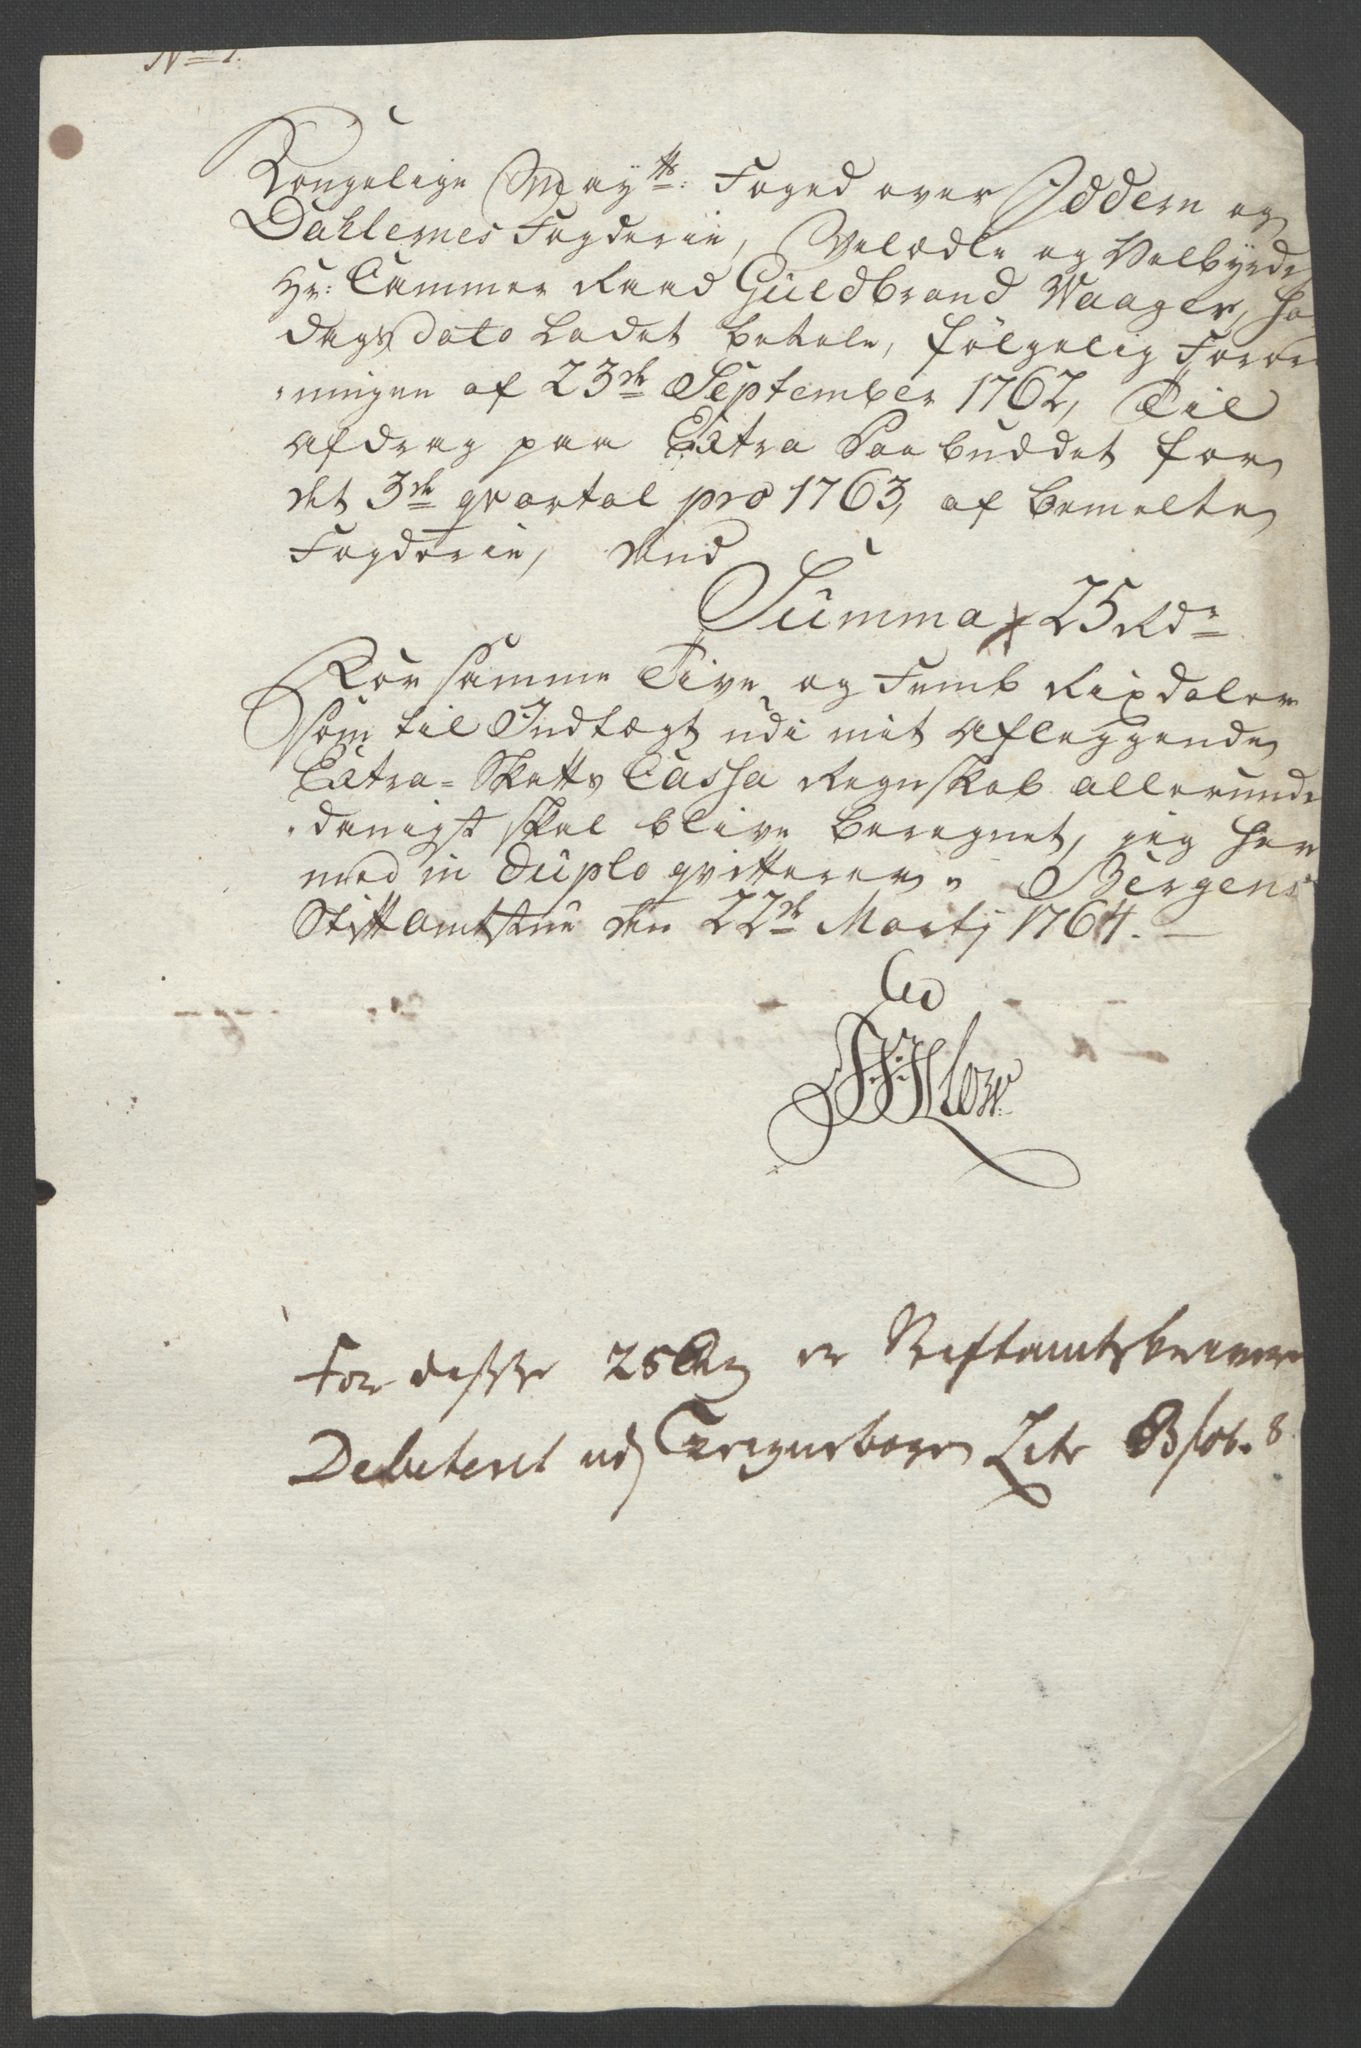 No 1.
Kongelige May:tts Foged over Yddern og
Dahlernes Fogderie, Velædle og Velbyrdig
Hr: Cammer Raad Guldbrand Vaager, ha
dags dato ladet betale, følgelig Foror
ningen af 23de September 1762, Til
Afdrag paa Extra Paabuddet for
det 3de qvartal pro 1763, af bemelte
Fogderie, dend
Summa 25 Rdr
For samme Tive og Femb Rixdaler
som til Indtægt udi mit aflæggende
Extra-Skatts Cassa Regnskab allerunde
danigst skal blive beregnet, jeg her
med in duplo qvitterer; Bergens
Stiftamtstue den 22de Martj 1764.
For disse 25 er Stiftamtskriver
Debiteret udj bogen Litr B fol. 8